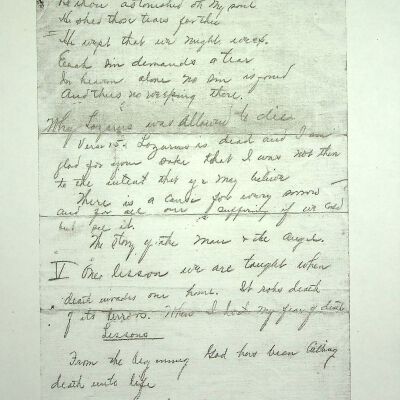 Be thou astonished oh my soul
He shed those tears for thee
He wept that we might weep.
Each sin demands a tear
In heaven alone no sin is found
And there's no weeping there.
Why Lazarus was allowed to die.
Verse 15. Lazarus is dead and I am
glad for your sake that I was not there
to the intent that ye may believe
There is a cause for every sorrow
and for all our suffering if we could
but see it.
The story of the man & the angel.
V One lesson we are taught when
death invades our home. It robs death
of its terrors. When I lost my fear of death
Lessons
From the beginning God has been calling
death unto life